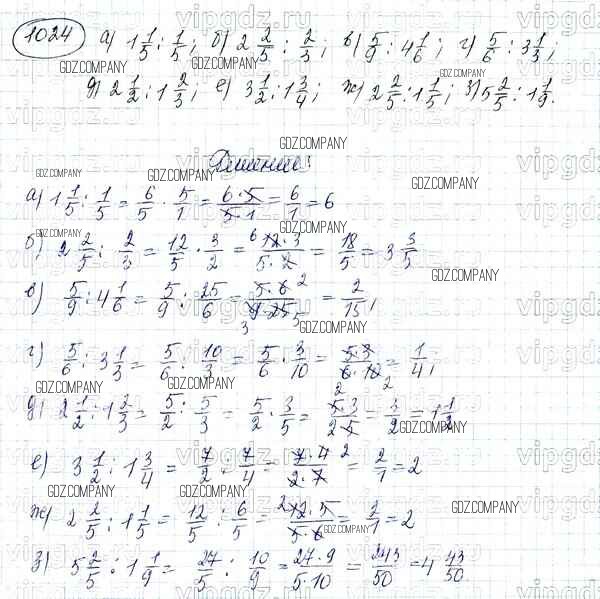 1024 а) 1 1/5 : 1/5; б) 2 2/5 : 2/3; в) 5/9 : 4 1/6; г) 5/6 : 3 1/3;
д) 2 1/2 : 1 2/3; е) 3 1/2 : 1 3/4; ж) 2 2/5 : 1 1/5; з) 5 2/5 : 1 1/9.
Решение:
а) 1 1/5 : 1/5 = 6/5 · 5/1 = 6·5/5·1 = 6/1 = 6
б) 2 2/5 : 2/3 = 12/5 · 3/2 = 6 12·3/5·2 = 18/5 = 3 3/5
в) 5/9 : 4 1/6 = 5/9 : 25/6 = 5·6 2/3 9·25 5 = 2/15;
г) 5/6 : 3 1/3 = 5/6 : 10/3 = 5/6 · 3/10 = 5·3/6·10 2 2 = 1/4;
д) 2 1/2 : 1 2/3 = 5/2 : 5/3 = 5/2 · 3/5 = 5·3/2·5 = 3/2 = 1 1/2
е) 3 1/2 : 1 3/4 = 7/2 : 7/4 = 7·4 2/2·7 = 2/1 = 2
ж) 2 2/5 : 1 1/5 = 12/5 : 6/5 = 2 12·5/5·6 = 2/1 = 2
з) 5 2/5 : 1 1/9 = 27/5 : 10/9 = 27·9/5·10 = 243/50 = 4 43/50
GDZ.COMPANY
vipgdz.ru